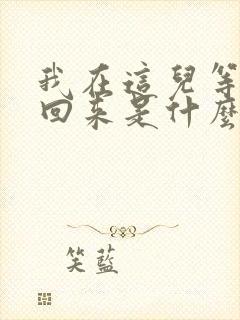 我在這兒等
回来是什麼
笑藍